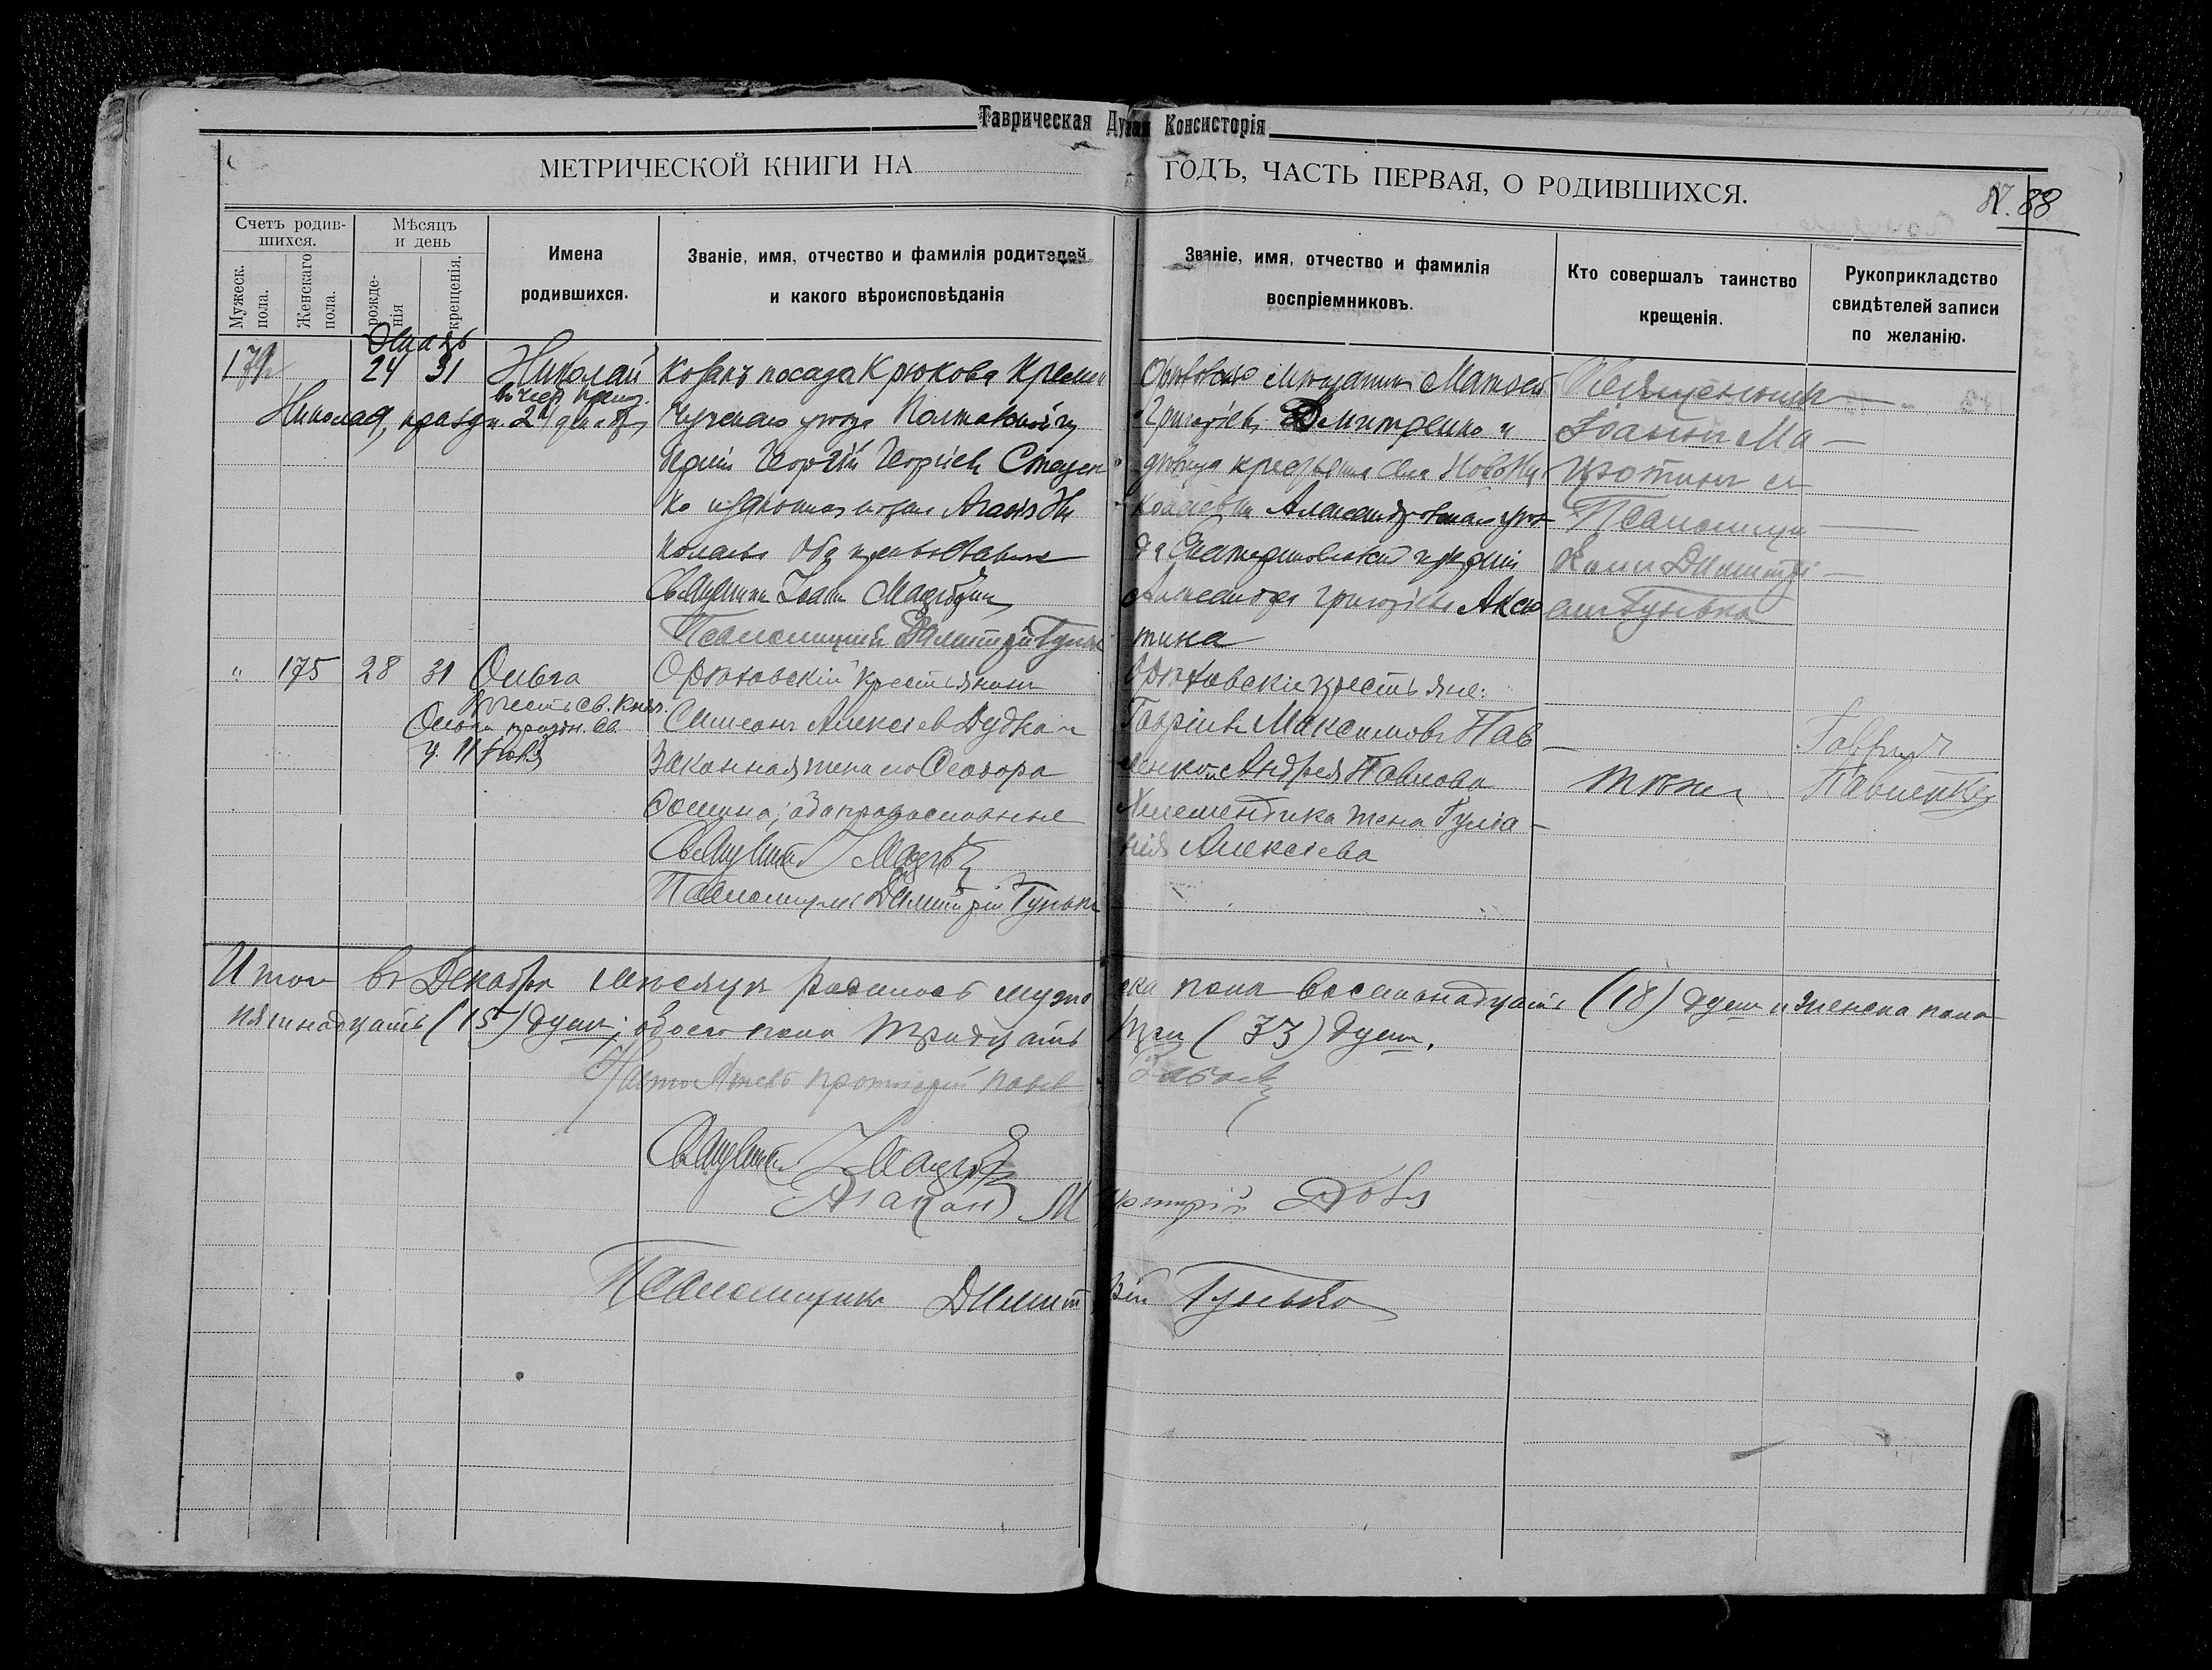 Таврическая Духая Консисторія
МЕТРИЧЕСКОЙ КНИГИ НА ГОДЪ, ЧАСТЬ ПЕРВАЯ, О РОДИВШИХСЯ.
88
Счетъ родив-
шихся.
Мужеск.
пола.
Женскаго
пола.
Мѣсяцъ
и день
рожде-
нія
крещенія.
Имена
родившихся.
Званіе, имя, отчество и фамилія родителей
и какого вѣроисповѣданія
Званіе, имя, отчество и фамилія
воспріемниковъ.
Кто совершалъ таинство
крещенія.
Рукоприкладство
свидѣтелей записи
по желанію.
24 31 Николай
Козакъ посада Крюкова Кремен
чугскаго уѣзда Полтавской гу
берніи Георгій Георгіевъ
законная жена
Оба православные
Священникъ Іоаннъ
Псаломщикъ Димитрій Гунько
Орѣховскій мѣщанинъ Матѳей
Григорьевъ Дмитренко и
дѣвица крестьянка села Новони
колаевки Александровскаго уѣз
да Екатеринославской губерніи
Александра Григорьева Аксю
тина
Священникъ
Іоаннъ Ма
съ
Псаломщи
комъ Димитрі
емъ Гунько
" 175 28 31 Ольга
въ честь св. княг.
Ольги праздн. св.
ч. 11 іюля
Орѣховскій крестьянинъ
Симеонъ Алексіевъ Дудка и
законная жена его Ѳеодора
Ѳомина; оба православные
Псаломщикъ Димитрій Гунько
Орѣховскіе крестьяне:
Гавріилъ Максимовъ Пав
ленко и Андрея Павлова
жена
Алексіева
Тѣже
Гавріилъ
Павленко
Итого въ Декабрѣ мѣсяцѣ родилось мужеска пола восемнадцать (18) душъ и женска пола
пятнадцать (15) душъ; обоего пола тридцать три (33) душъ.
Настоятель протоіерей
Священникъ
Діаконъ
Псаломщикъ Димитрій Гунько